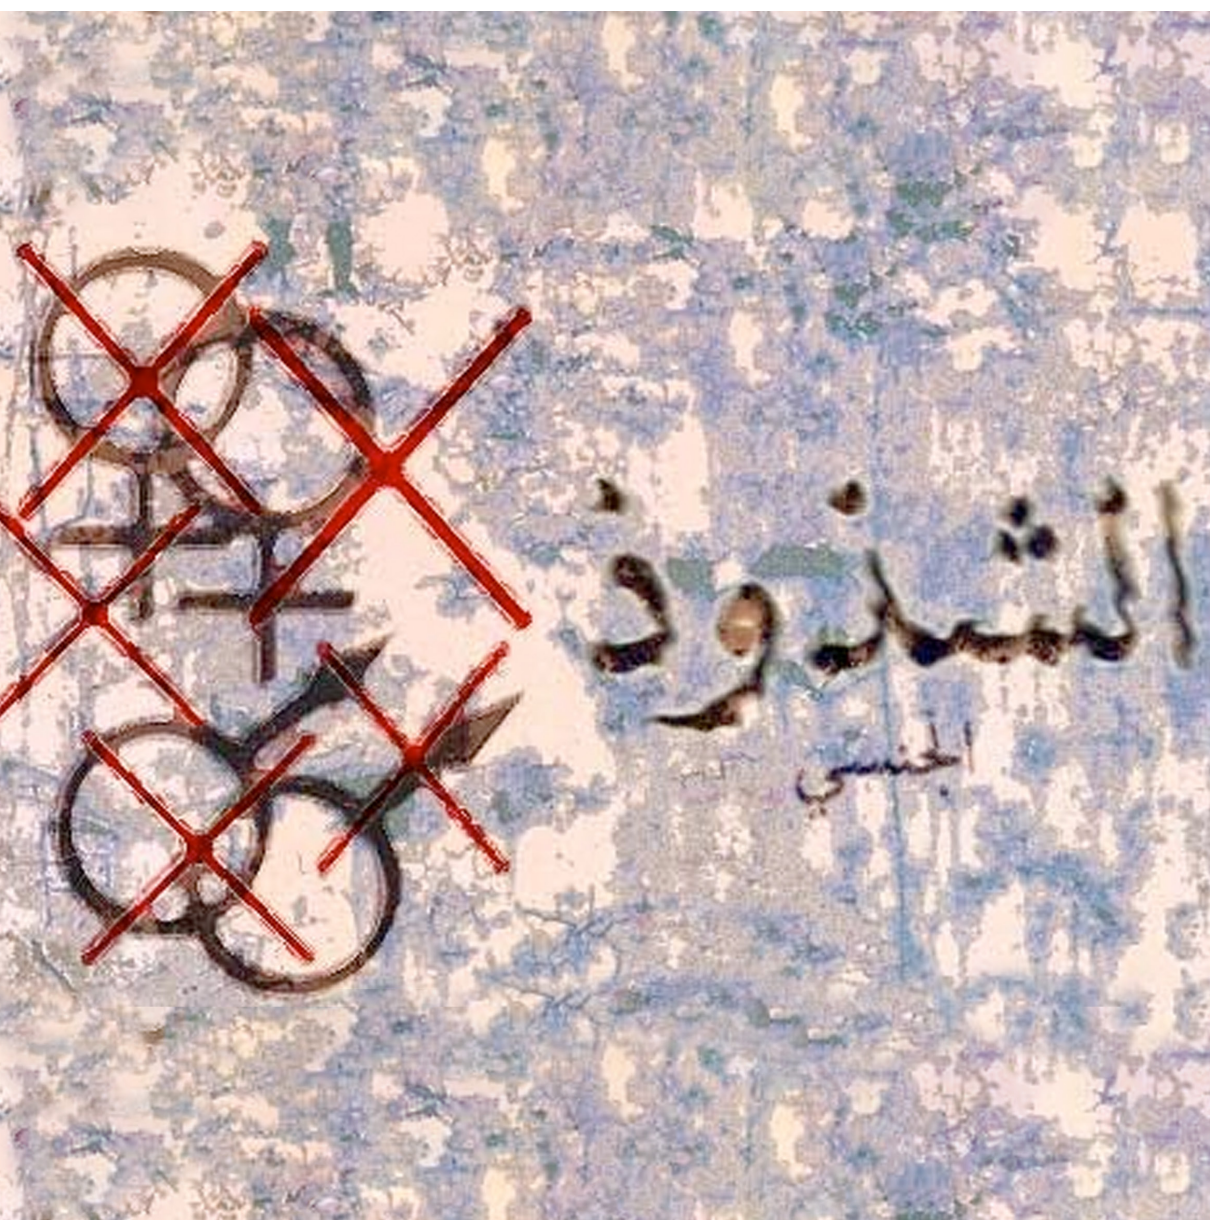 الشذوذ
الجنسي